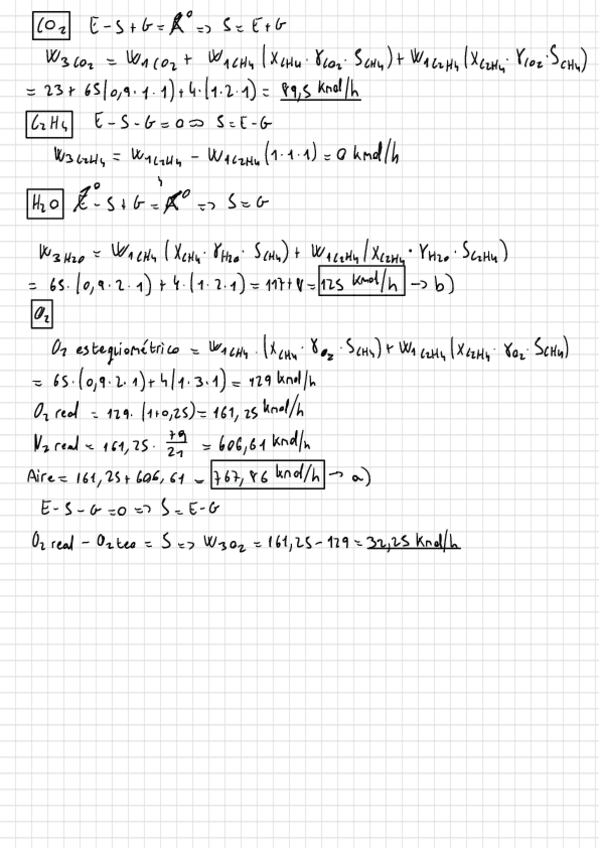 CO₂ E-S+G = A⁰ => S = E+G
W₃CO₂ = W₁CO₂ + W₁CH₄ (XCH₄ · γCO₂ · SCH₄) + W₁C₂H₄ (XC₂H₄ · γCO₂ · SCH₄)
= 23 + 65(0,9·1·1) + 4·(1·2·1) = 89,5 Kmol/h
C₂H₄ E-S-G = 0 => S = E-G
W₃C₂H₄ = W₁C₂H₄ - W₁C₂H₄ (1·1·1) = 0 kmol/h
H₂O E⁰-S+G = A⁰ => S = G
W₃H₂O = W₁CH₄ (XCH₄ · γH₂O · SCH₄) + W₁C₂H₄ (XC₂H₄ · γH₂O · SC₂H₄)
= 65·(0,9·2·1) + 4·(1·2·1) = 117+8 = 125 Kmol/h -> b)
O₂
O₂ estequiométrico = W₁CH₄ · (XCH₄ · γO₂ · SCH₄) + W₁C₂H₄ (XC₂H₄ · γO₂ · SCH₄)
= 65·(0,9·2·1) + 4(1·3·1) = 129 kmol/h
O₂ real = 129·(1+0,25) = 161,25 kmol/h
N₂ real = 161,25 · 79/21 = 606,61 kmol/h
Aire = 161,25 + 606,61 = 767,86 kmol/h -> a)
E-S-G = 0 => S = E-G
O₂ real - O₂ teo = S => W₃O₂ = 161,25 - 129 = 32,25 Kmol/h